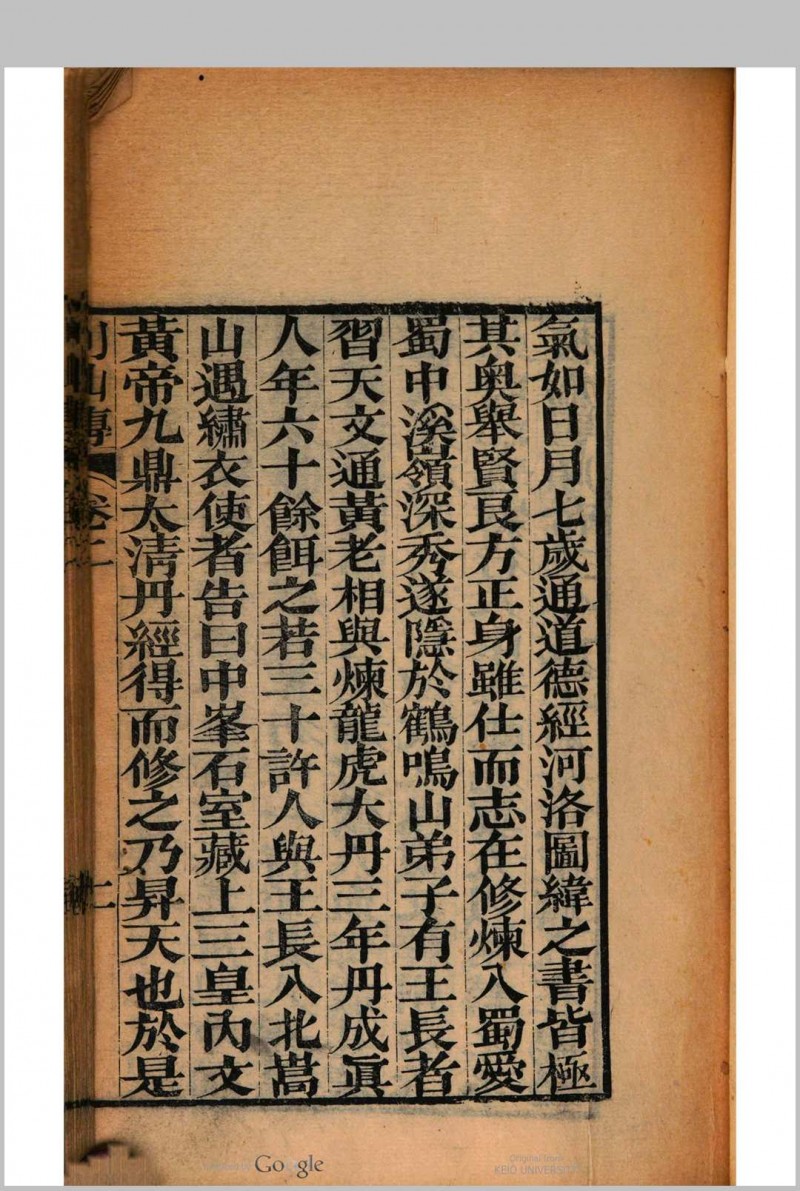 氣如日月七歲通道德經河洛圖緯之書皆極
其奧舉賢良方正身雖仕而志在修煉入蜀愛
蜀中溪嶺深秀遂隱於鶴鳴山弟子有王長者
習天文通黃老相與煉龍虎大丹三年丹成眞
人年六十餘餌之若三十許人與王長入北嵩
山遇繡衣使者告曰中峯石室藏上三皇內文
黃帝九鼎太淸丹經得而修之乃昇天也於是
列仙傳 卷二 二
Google
Original from
KEIO UNIVERSITY